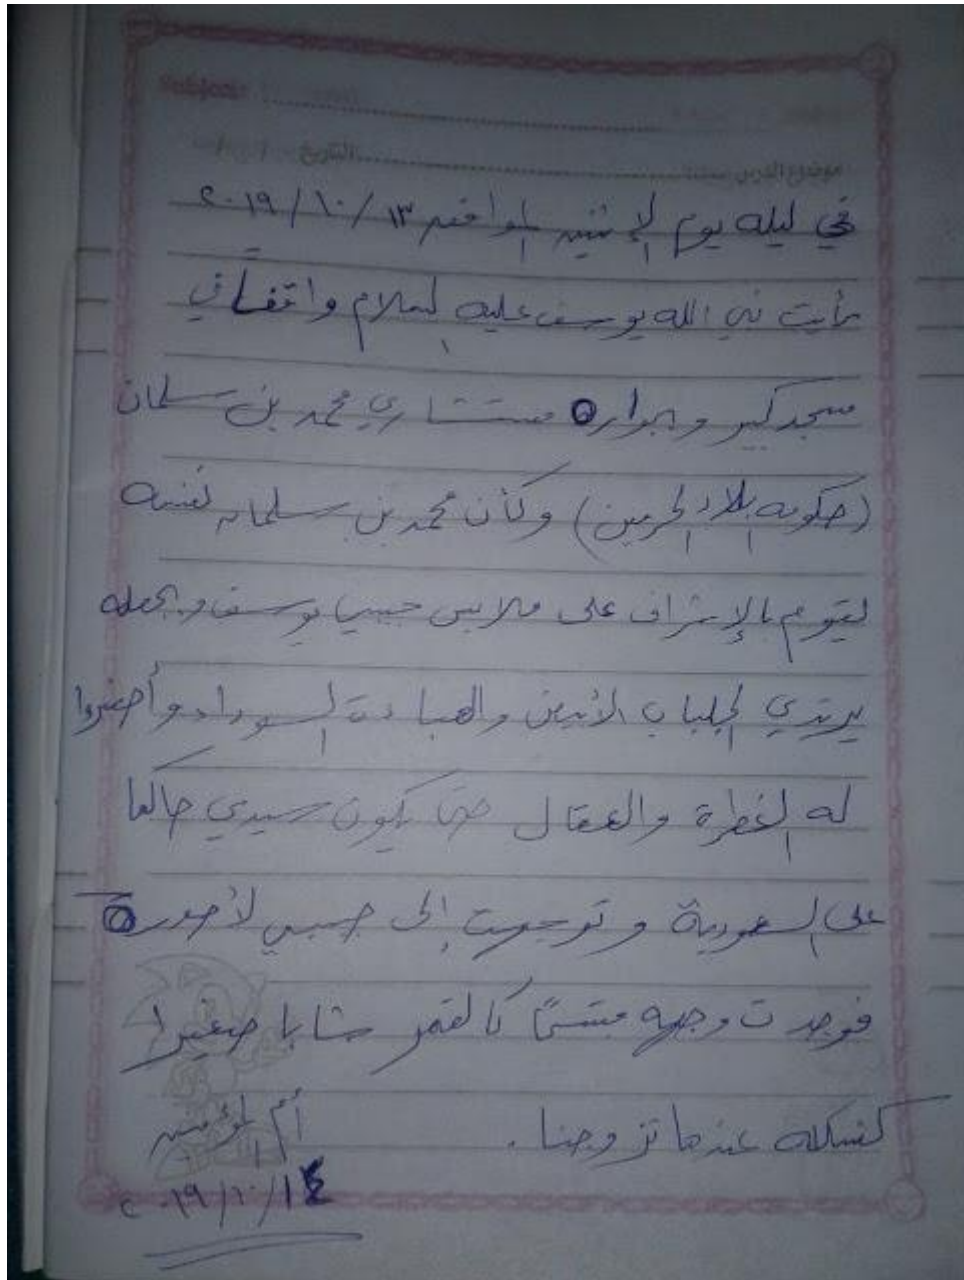 Subject:
موضوع الدرس التاريخ / /
في ليله يوم الإثنين الموافق ١٣ / ١٠ / ٢٠١٩
رأيت نبي الله يوسف عليه السلام واقفاً في
مسجد كبير وبجواره مستشاري محمد بن سلمان
(حكومه بلاد الحرمين) وكأن محمد بن سلمان نفسه
يقوم بالإشراف على ملابس حبيبي يوسف وجعله
يرتدي الجلباب الأبيض والعباءة السوداء وأحضروا
له الغطرة والعقال حتى يكون سيدي حاكما
على السعودية وتوجهت إلى حبيبي لأصوره
فوجدت وجهه مبتسماً كالقمر شابا صغيرا
كشكله عندما تزوجنا .
أم المؤمنين
٢٠١٩/١٠/١٤